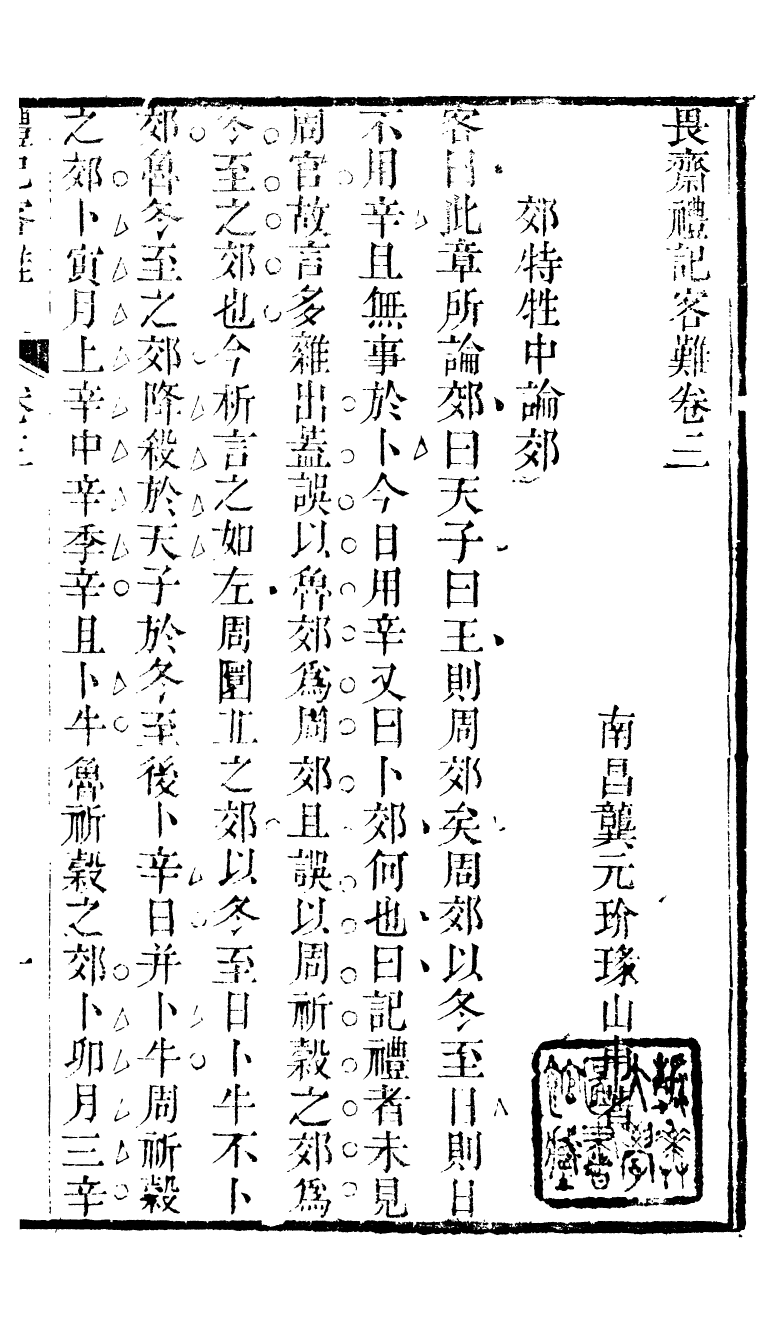 畏齋禮記客難卷三
南昌龔元玠瑑山甫著
郊特牲中論郊
客曰此章所論郊曰天子曰王則周郊矣周郊以冬至日則日
不用辛且無事於卜今日用辛又曰卜郊何也曰記禮者未見
周官故言多雜出蓋誤以魯郊爲周郊且誤以周祈穀之郊爲
冬至之郊也今析言之如左周圜丘之郊以冬至日卜牛不卜
郊魯冬至之郊降殺於天子於冬至後卜辛日并卜牛周祈穀
之郊卜寅月上辛中辛季辛且卜牛魯祈穀之郊卜卯月三辛
禮記客難
卷三
一